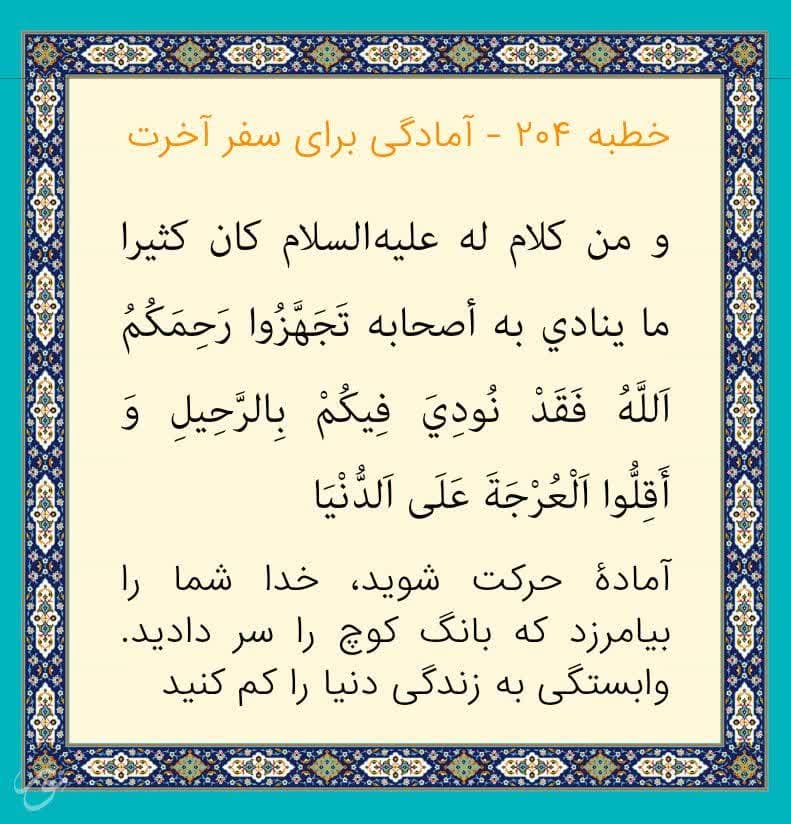 خطبه ۲۰۴ - آمادگی برای سفر آخرت
و من کلام له علیه‌السلام کان کثیرا
ما ینادي به أصحابه تَجَهَّزُوا رَحِمَكُمُ
اَللَّهُ فَقَدْ نُودِيَ فِيكُمْ بِالرَّحِيلِ وَ
أَقِلُّوا اَلْعُرْجَةَ عَلَى اَلدُّنْيَا
آمادهٔ حرکت شوید، خدا شما را
بیامرزد که بانگ کوچ را سر دادید.
وابستگی به زندگی دنیا را کم کنید